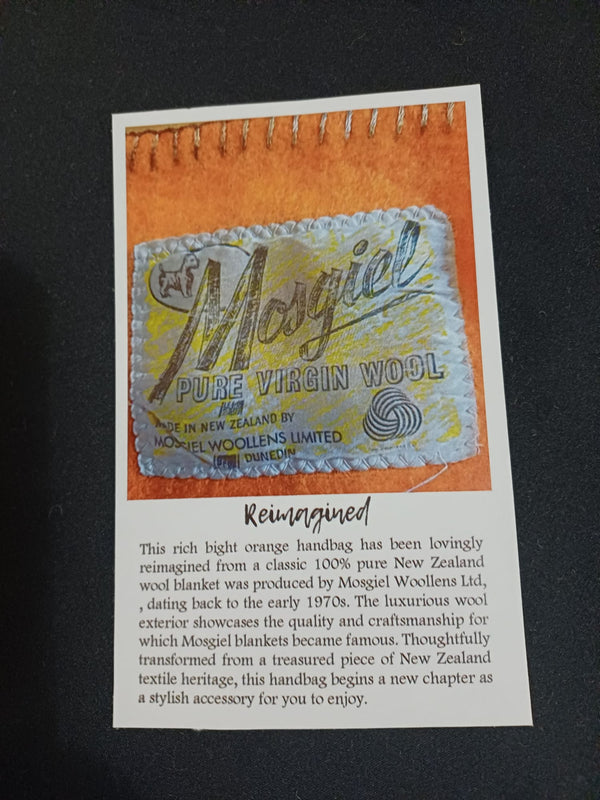 Mosgiel
PURE VIRGIN WOOL
MADE IN NEW ZEALAND BY
MOSGIEL WOOLLENS LIMITED
DUNEDIN
Reimagined
This rich bight orange handbag has been lovingly
reimagined from a classic 100% pure New Zealand
wool blanket was produced by Mosgiel Woollens Ltd,
, dating back to the early 1970s. The luxurious wool
exterior showcases the quality and craftsmanship for
which Mosgiel blankets became famous. Thoughtfully
transformed from a treasured piece of New Zealand
textile heritage, this handbag begins a new chapter as
a stylish accessory for you to enjoy.